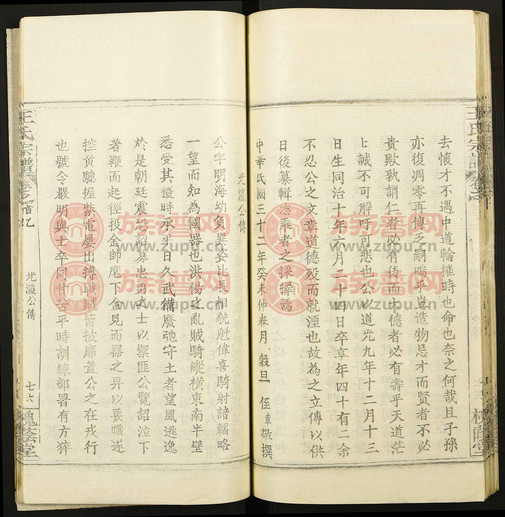 去懷才不遇中道輪摧時也命也奈之何哉且子孫
亦復凋零再傳之嗣豈造物忌才而賢者不必
貴歟孰謂仁者必有後而大德者必有壽乎天道茫
誠不可解悲也公以道光九年十二月十三
日生同治十年六月二十四日卒享年四十有三
不忍公之文章道德歿而就湮也故為之立傳以供
日後纂輯志乘者之採擇焉
中華民國三十二年癸未仲春月 穀旦 侄章敬撰
光瀛公傳
公字明海幼負異姿比長相貌魁偉喜騎射諳韜略
一望而知為國器也洪楊之亂賊騎縱橫東南半壁
悉受其擾時承平日久武備廢弛守土者望風逃逸
於是朝廷震怒詔募忠勇之士以禦匪公覽詔泣下
著鞭而起徑投金帥麾下金見而器之畀以要職遂
控黃驄握紫電屢出搏戰賊皆披靡蓋公之在戎行
也號令嚴明與士卒同甘苦平時訓練部署有方猝
王氏宗譜
卷之首
光瀛公傳
七六
槐蔭堂
王氏宗譜
槐蔭堂
族谱网
www.zupu.cn